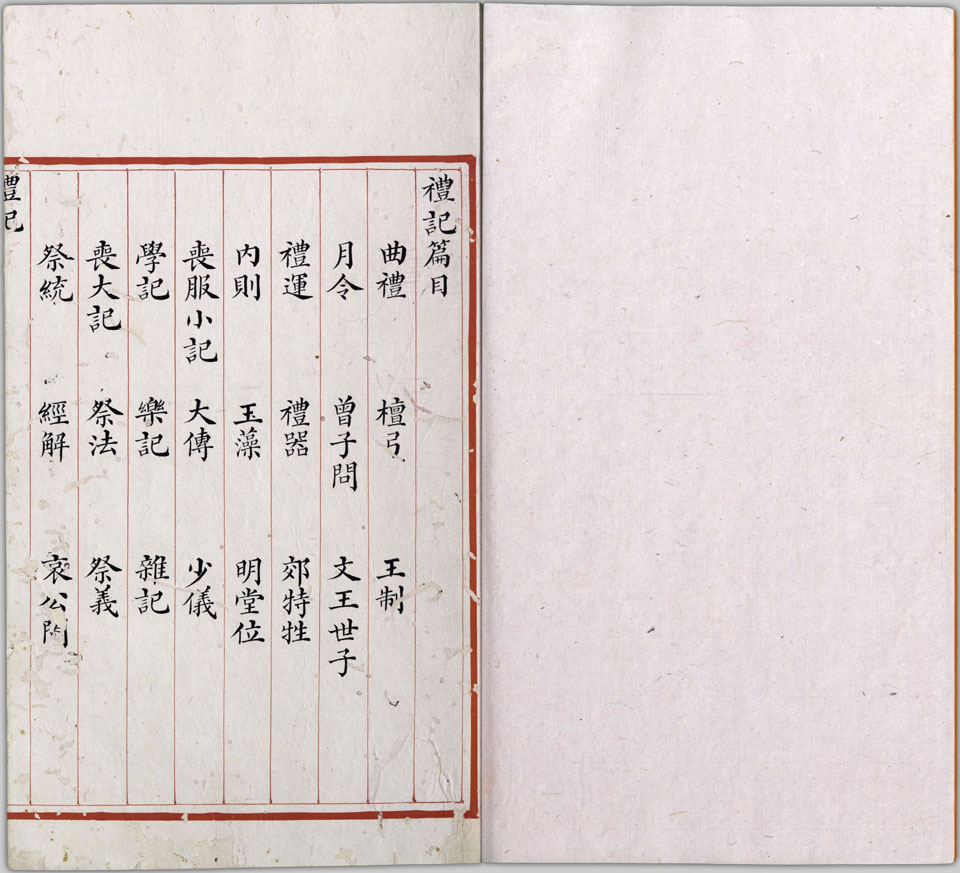 禮記篇目
曲禮 檀弓 王制
月令 曾子問 文王世子
禮運 禮器 郊特牲
内則 玉藻 明堂位
喪服小記 大傳 少儀
學記 樂記 雜記
喪大記 祭法 祭義
祭統 經解 哀公問
禮記